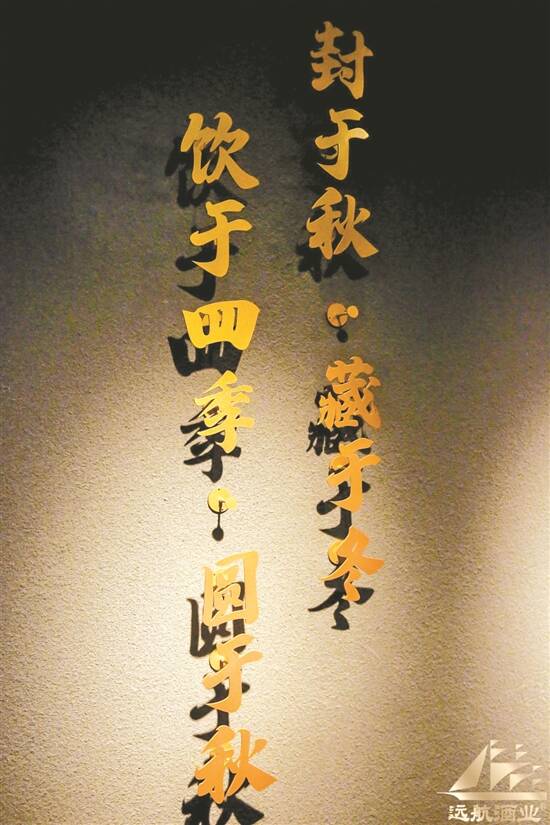 封于秋·藏于冬
饮于四季·圆于秋
远航酒业